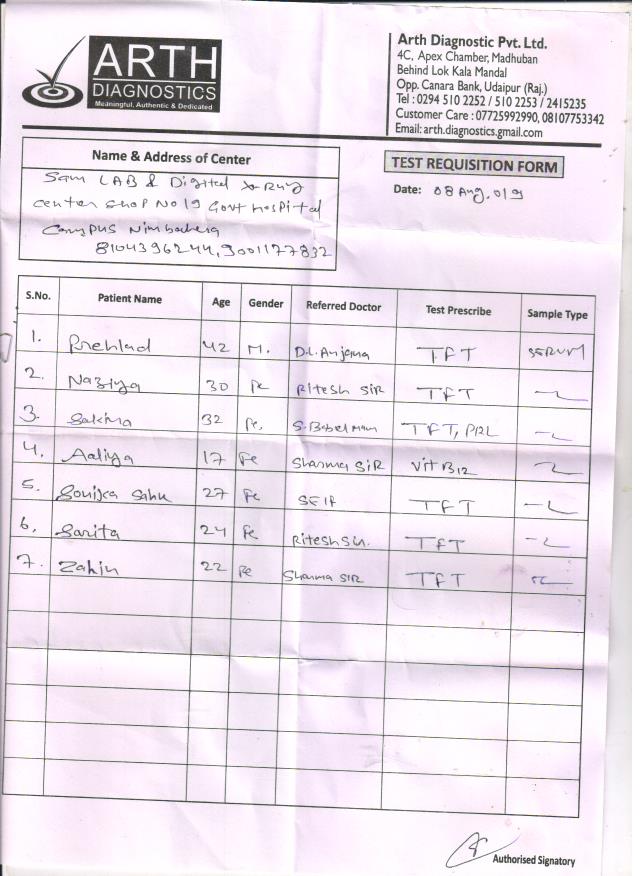 ARTH
DIAGNOSTICS
Meaningful, Authentic & Dedicated
Arth Diagnostic Pvt. Ltd.
4C, Apex Chamber, Madhuban
Behind Lok Kala Mandal
Opp. Canara Bank, Udaipur (Raj.)
Tel : 0294 510 2252 / 510 2253 / 2415235
Customer Care : 07725992990, 08107753342
Email: arth.diagnostics.gmail.com
Name & Address of Center
Sam LAB & Digital X-Ray
center shop No 19 Govt hospital
Campus Nimbahera
8104396244, 9001177832
TEST REQUISITION FORM
Date: 08 Aug. 019
S.No. Patient Name Age Gender Referred Doctor Test Prescribe Sample Type
1. Prehlad 42 M. D.L. Anjana TFT SERUM
2. Naziya 30 Fe Ritesh SIR TFT
3. Sakina 32 Fe. S. Babel mam TFT, PRL
4. Aaliya 17 Fe Sharma SIR Vit B12
5. Sonika Sahu 27 Fe SElf TFT
6. Sarita 24 Fe Ritesh TFT
7. 22 Fe Sharma SIR TFT
Authorised Signatory